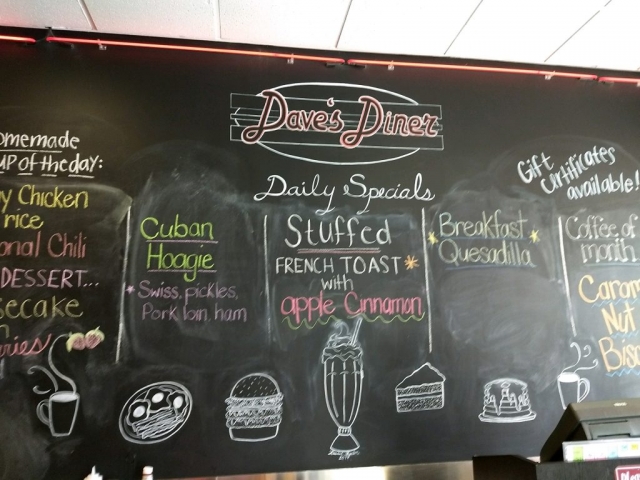 Dave's Diner
Daily Specials
omemade
MP of the day:
y Chicken
rice
onal Chili
DESSERT...
secake
ries
Cuban
Hoagie
*Swiss, pickles,
Pork loin, ham
Stuffed
FRENCH TOAST*
with
apple Cinnamon
*Breakfast*
Quesadilla
Gift
Certificates
available!
Coffee of
month
Caram
Nut
Bis